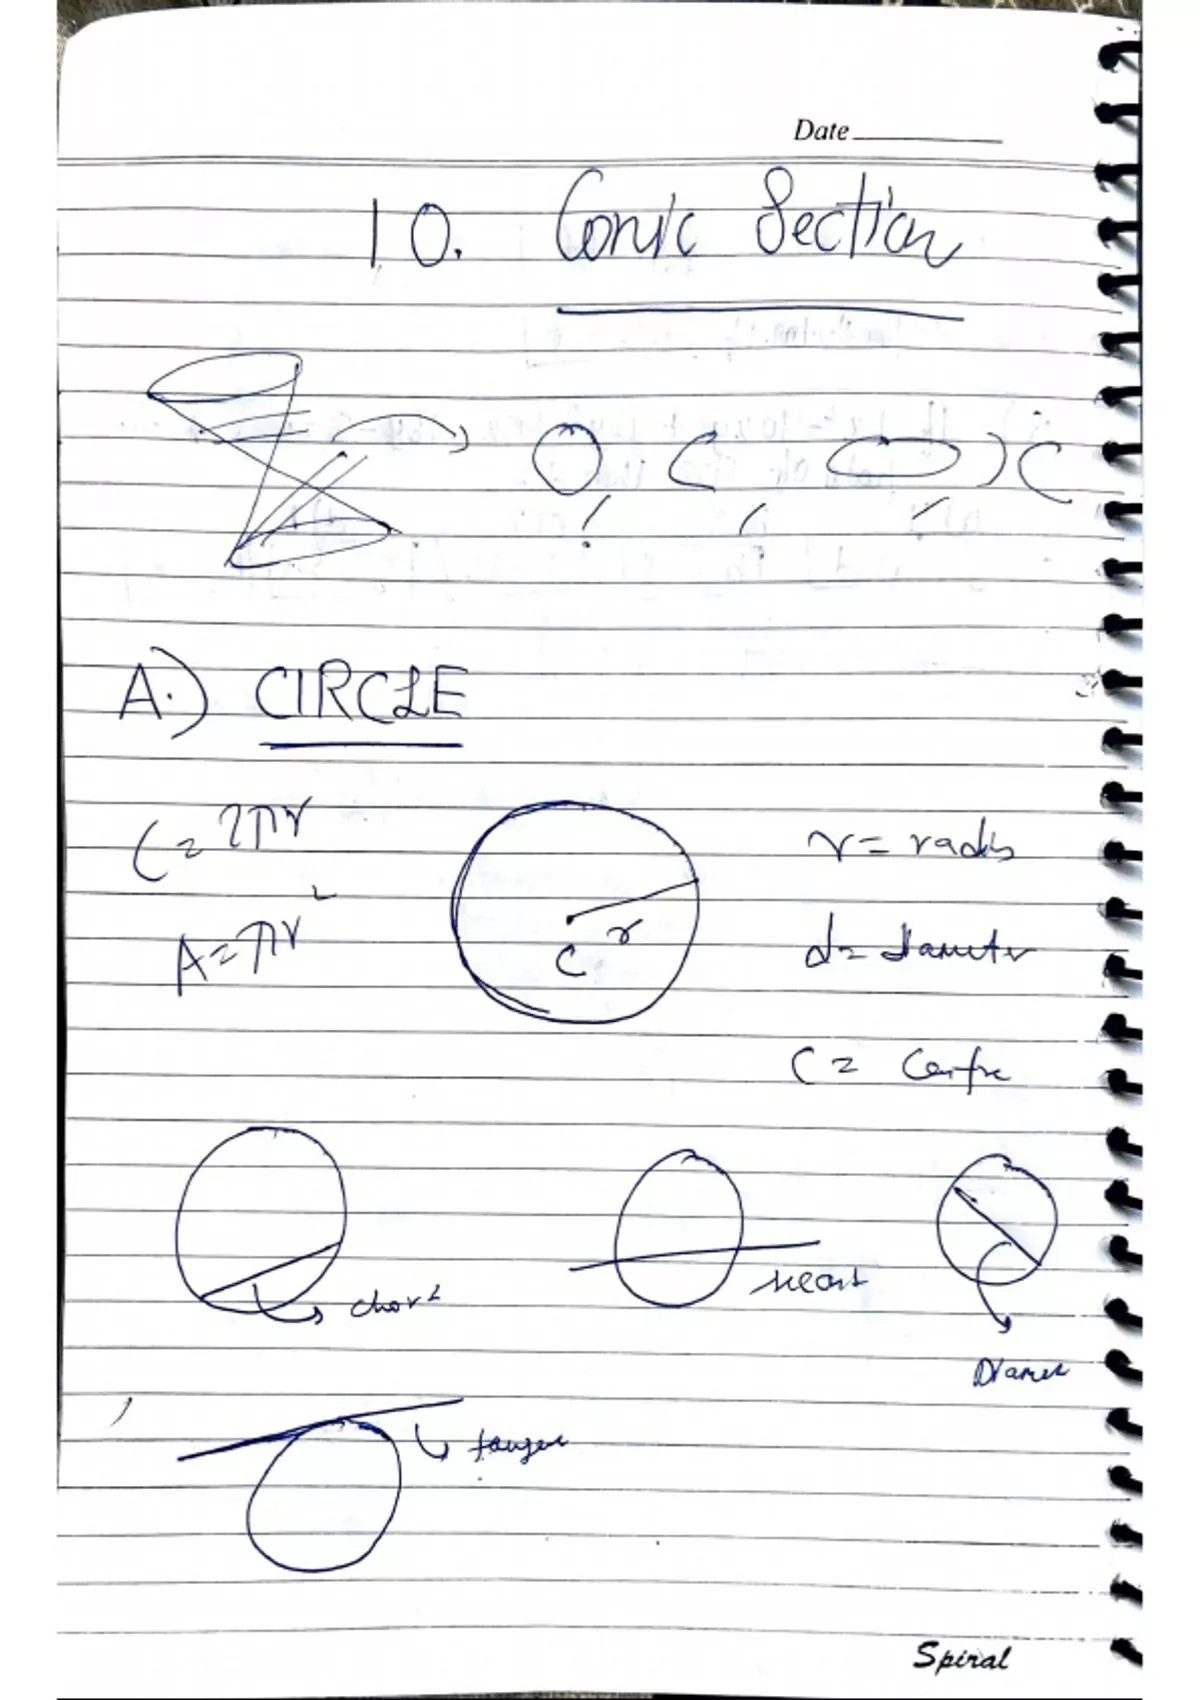 Date
10. Conic Section
A.) CIRCLE
C = 2πr
r = radis
A = πr²
C r
d = diameter
C = Centre
chord
secant
Diamet
tangen
Spiral